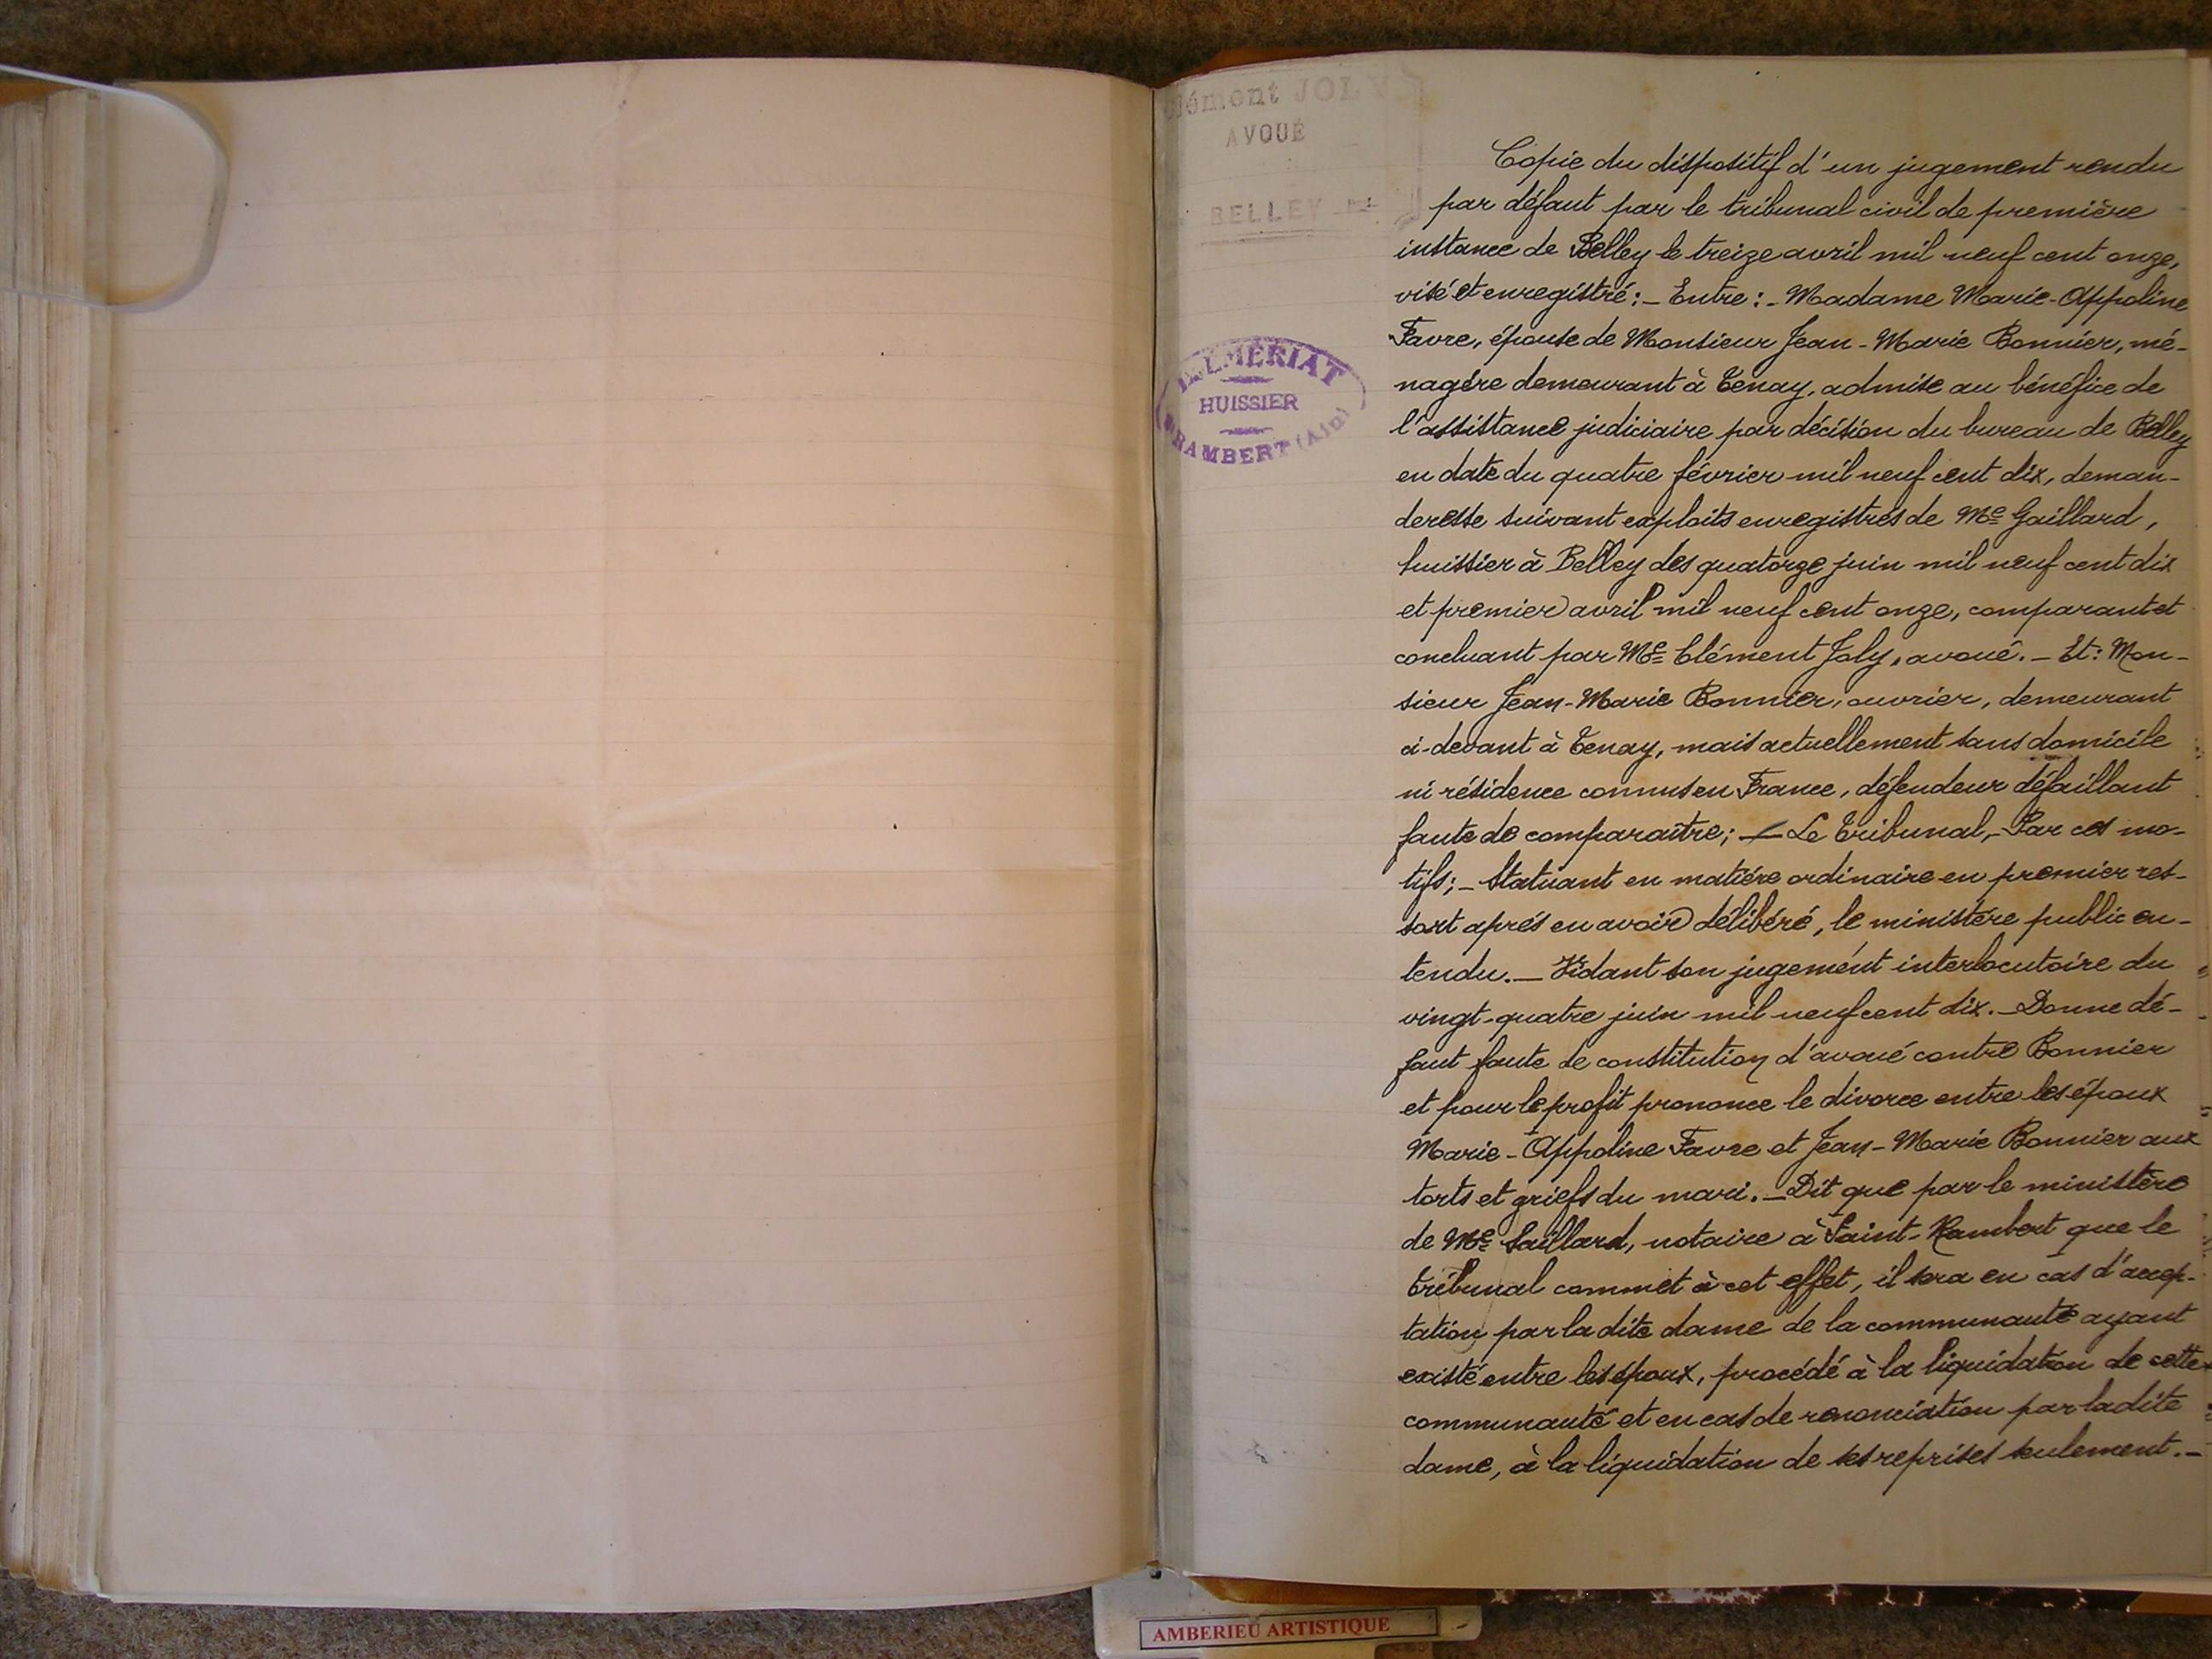 Clément JOLY
AVOUÉ
BELLEY
HUISSIER
RAMBERT (Ain)
Copie du dispositif d'un jugement rendu
par défaut par le tribunal civil de première
instance de Belley le treize avril mil neuf cent onze,
visé et enregistré :- Entre :- Madame Marie-Appoline
Favre, épouse de Monsieur Jean-Marie Bonnier, mé-
nagère demeurant à Tenay, admise au bénéfice de
l'assistance judiciaire par décision du bureau de Belley
en date du quatre février mil neuf cent dix, deman-
deresse suivant exploits enregistrés de Me Gaillard,
huissier à Belley des quatorze juin mil neuf cent dix
et premier avril mil neuf cent onze, comparant et
concluant par Me Clément Joly, avoué. - Et : Mon-
sieur Jean-Marie Bonnier, ouvrier, demeurant
ci-devant à Tenay, mais actuellement sans domicile
ni résidence connus en France, défendeur défaillant
faute de comparaître; - Le Tribunal, - Par ces mo-
tifs; - Statuant en matière ordinaire en premier res-
sort après en avoir délibéré, le ministère public en-
tendu. - Vidant son jugement interlocutoire du
vingt-quatre juin mil neuf cent dix. - Donne dé-
faut faute de constitution d'avoué contre Bonnier
et pour le profit prononce le divorce entre les époux
Marie-Appoline Favre et Jean-Marie Bonnier aux
torts et griefs du mari. - Dit que par le ministère
de Me notaire à Saint-Rambert que le
tribunal commet à cet effet, il sera en cas d'accep-
tation par la dite dame de la communauté ayant
existé entre les époux, procédé à la liquidation de cette
communauté et en cas de renonciation par ladite
dame, à la liquidation de ses reprises seulement. -
AMBERIEU ARTISTIQUE